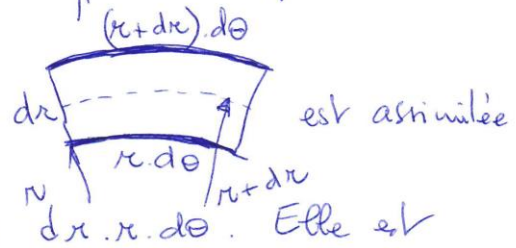 (r+dr).dθ
dr
est assimilée
r.dθ
r
r+dr
dr.r.dθ. Elle est